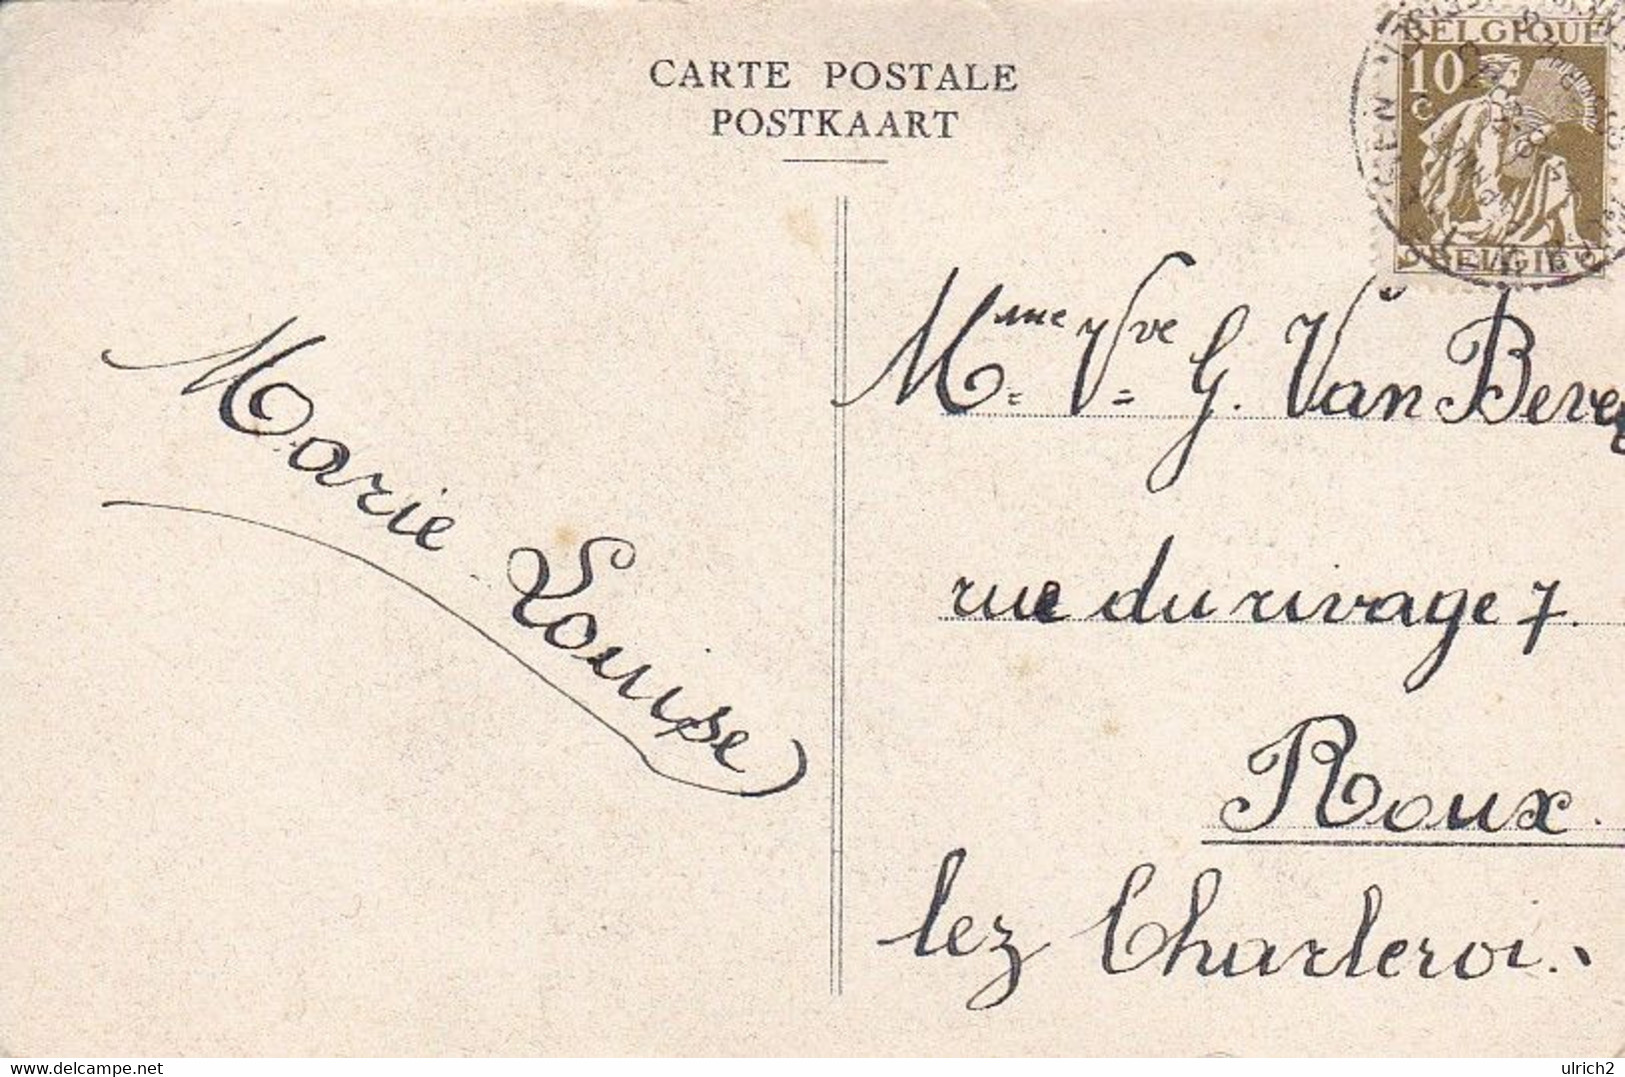 CARTE POSTALE
POSTKAART
BELGIQUE
10
C
BELGIE
Marie Louise
Mme Vve G. Van Beve
rue du rivage 7.
Roux.
lez Charleroi.
delcampe.net
ulrich2